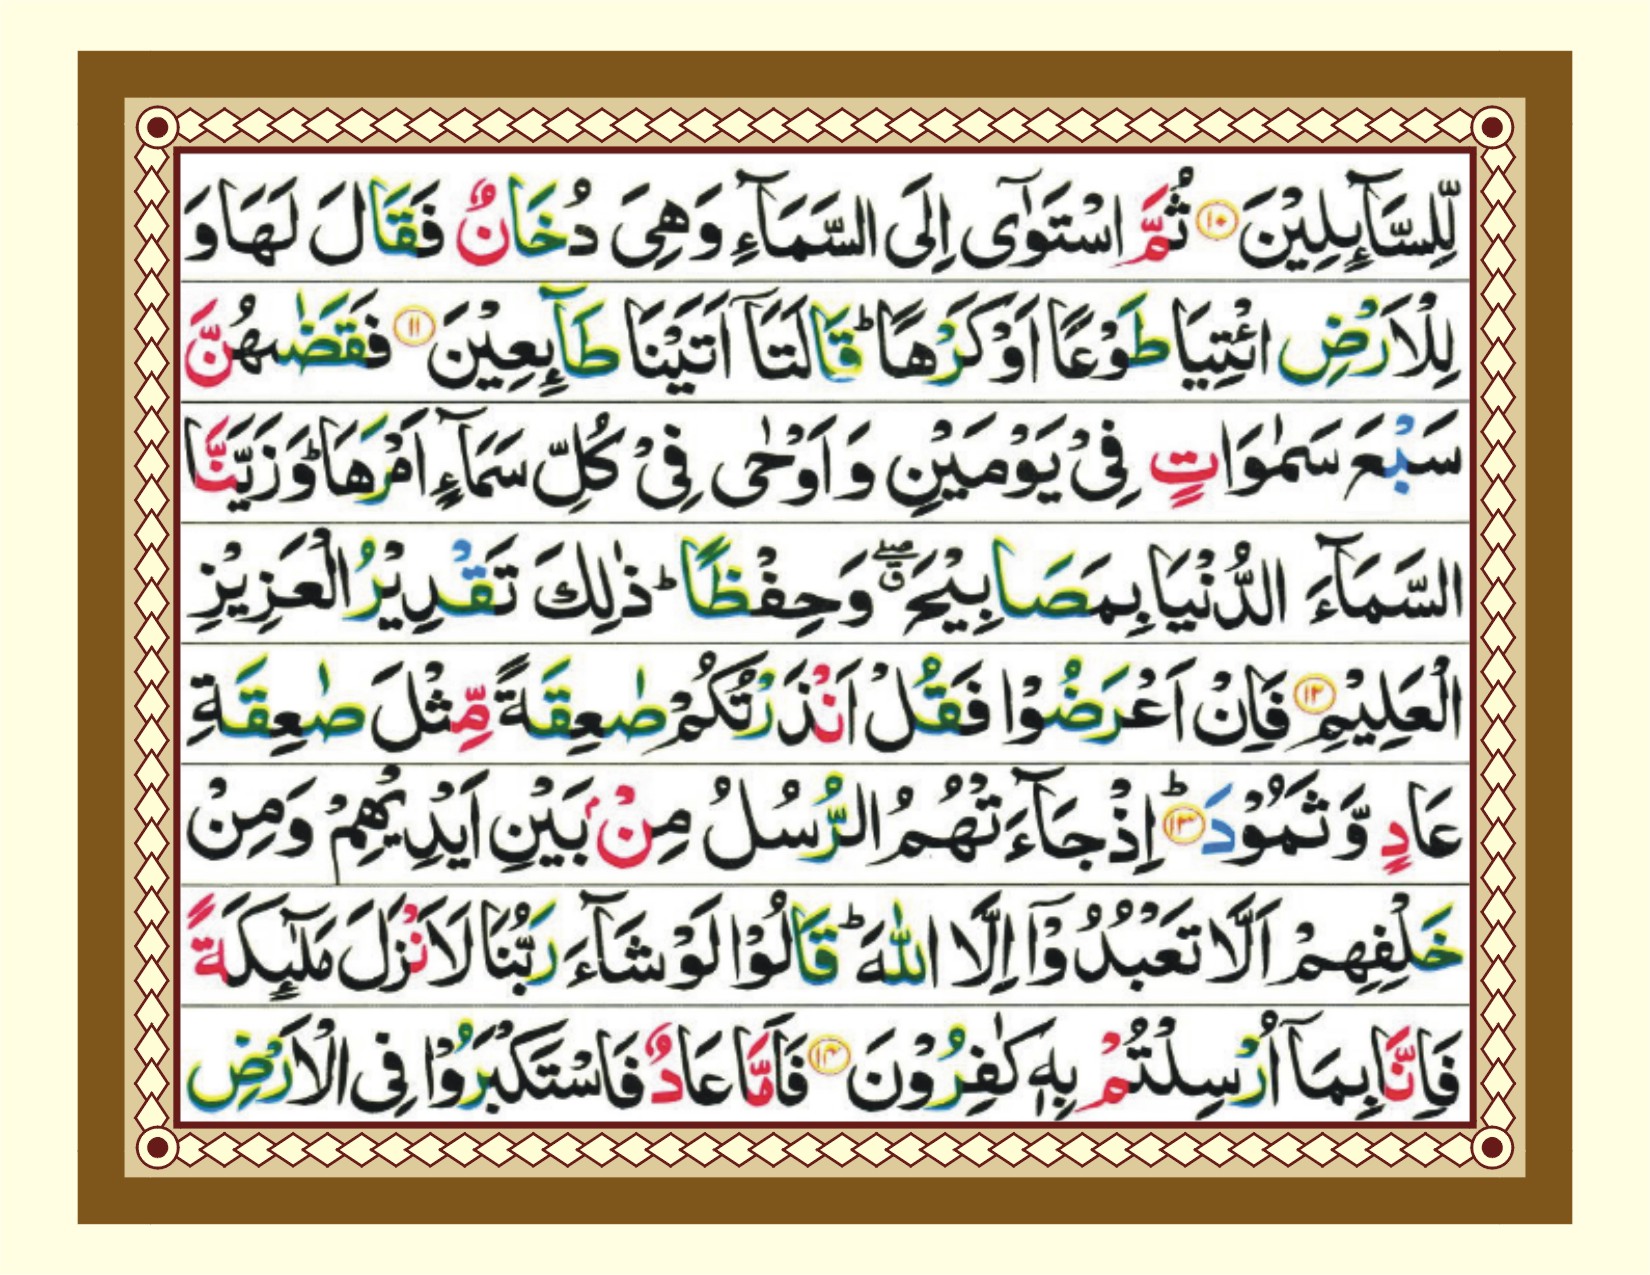 لِّلسَّآىِٕلِیْنَ ۝۱۰ ثُمَّ اسْتَوٰۤی اِلَی السَّمَآءِ وَهِیَ دُخَانٌ فَقَالَ لَهَا وَ
لِلْاَرْضِ ائْتِیَا طَوْعًا اَوْ كَرْهًا ؕ قَالَتَاۤ اَتَیْنَا طَآىِٕعِیْنَ ۝۱۱ فَقَضٰىهُنَّ
سَبْعَ سَمٰوَاتٍ فِیْ یَوْمَیْنِ وَاَوْحٰی فِیْ كُلِّ سَمَآءٍ اَمْرَهَا ؕ وَزَیَّنَّا
السَّمَآءَ الدُّنْیَا بِمَصَابِیْحَ ۖۗ وَحِفْظًا ؕ ذٰلِكَ تَقْدِیْرُ الْعَزِیْزِ
الْعَلِیْمِ ۝۱۲ فَاِنْ اَعْرَضُوْا فَقُلْ اَنْذَرْتُكُمْ صٰعِقَةً مِّثْلَ صٰعِقَةِ
عَادٍ وَّثَمُوْدَ ؕ۝۱۳ اِذْ جَآءَتْهُمُ الرُّسُلُ مِنْۢ بَیْنِ اَیْدِیْهِمْ وَمِنْ
خَلْفِهِمْ اَلَّا تَعْبُدُوْۤا اِلَّا اللّٰهَ ؕ قَالُوْا لَوْ شَآءَ رَبُّنَا لَاَنْزَلَ مَلٰٓىِٕكَةً
فَاِنَّا بِمَاۤ اُرْسِلْتُمْ بِهٖ كٰفِرُوْنَ ۝۱۴ فَاَمَّا عَادٌ فَاسْتَكْبَرُوْا فِی الْاَرْضِ